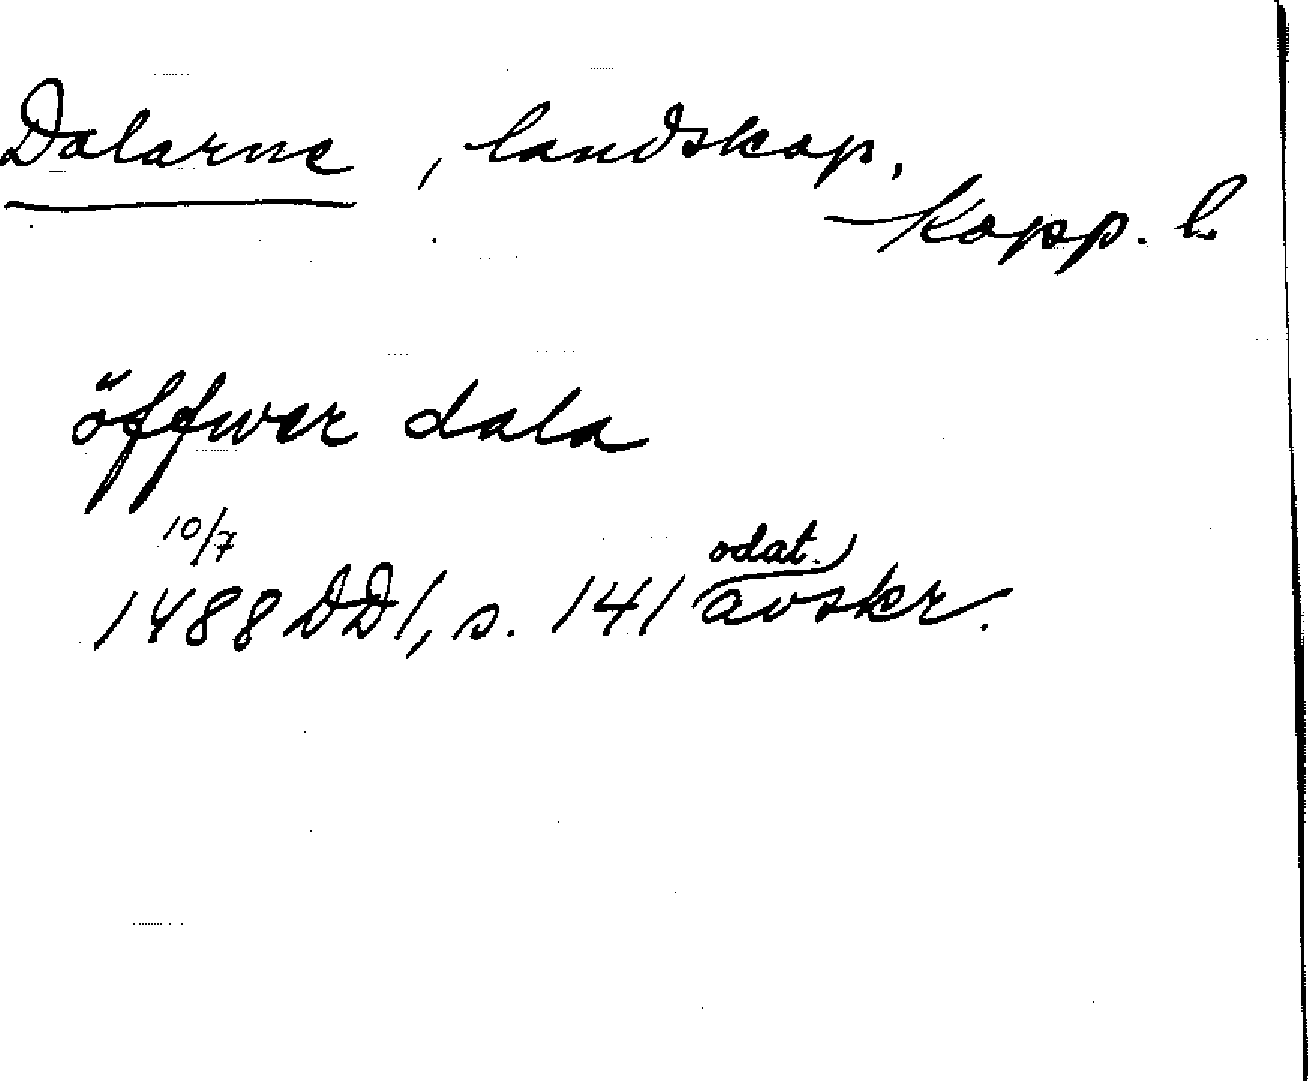 Dalarne, landskap.
Kopp. l.
öffwer dala
10/7
odat.
1488 DD1, s. 141 avskr.